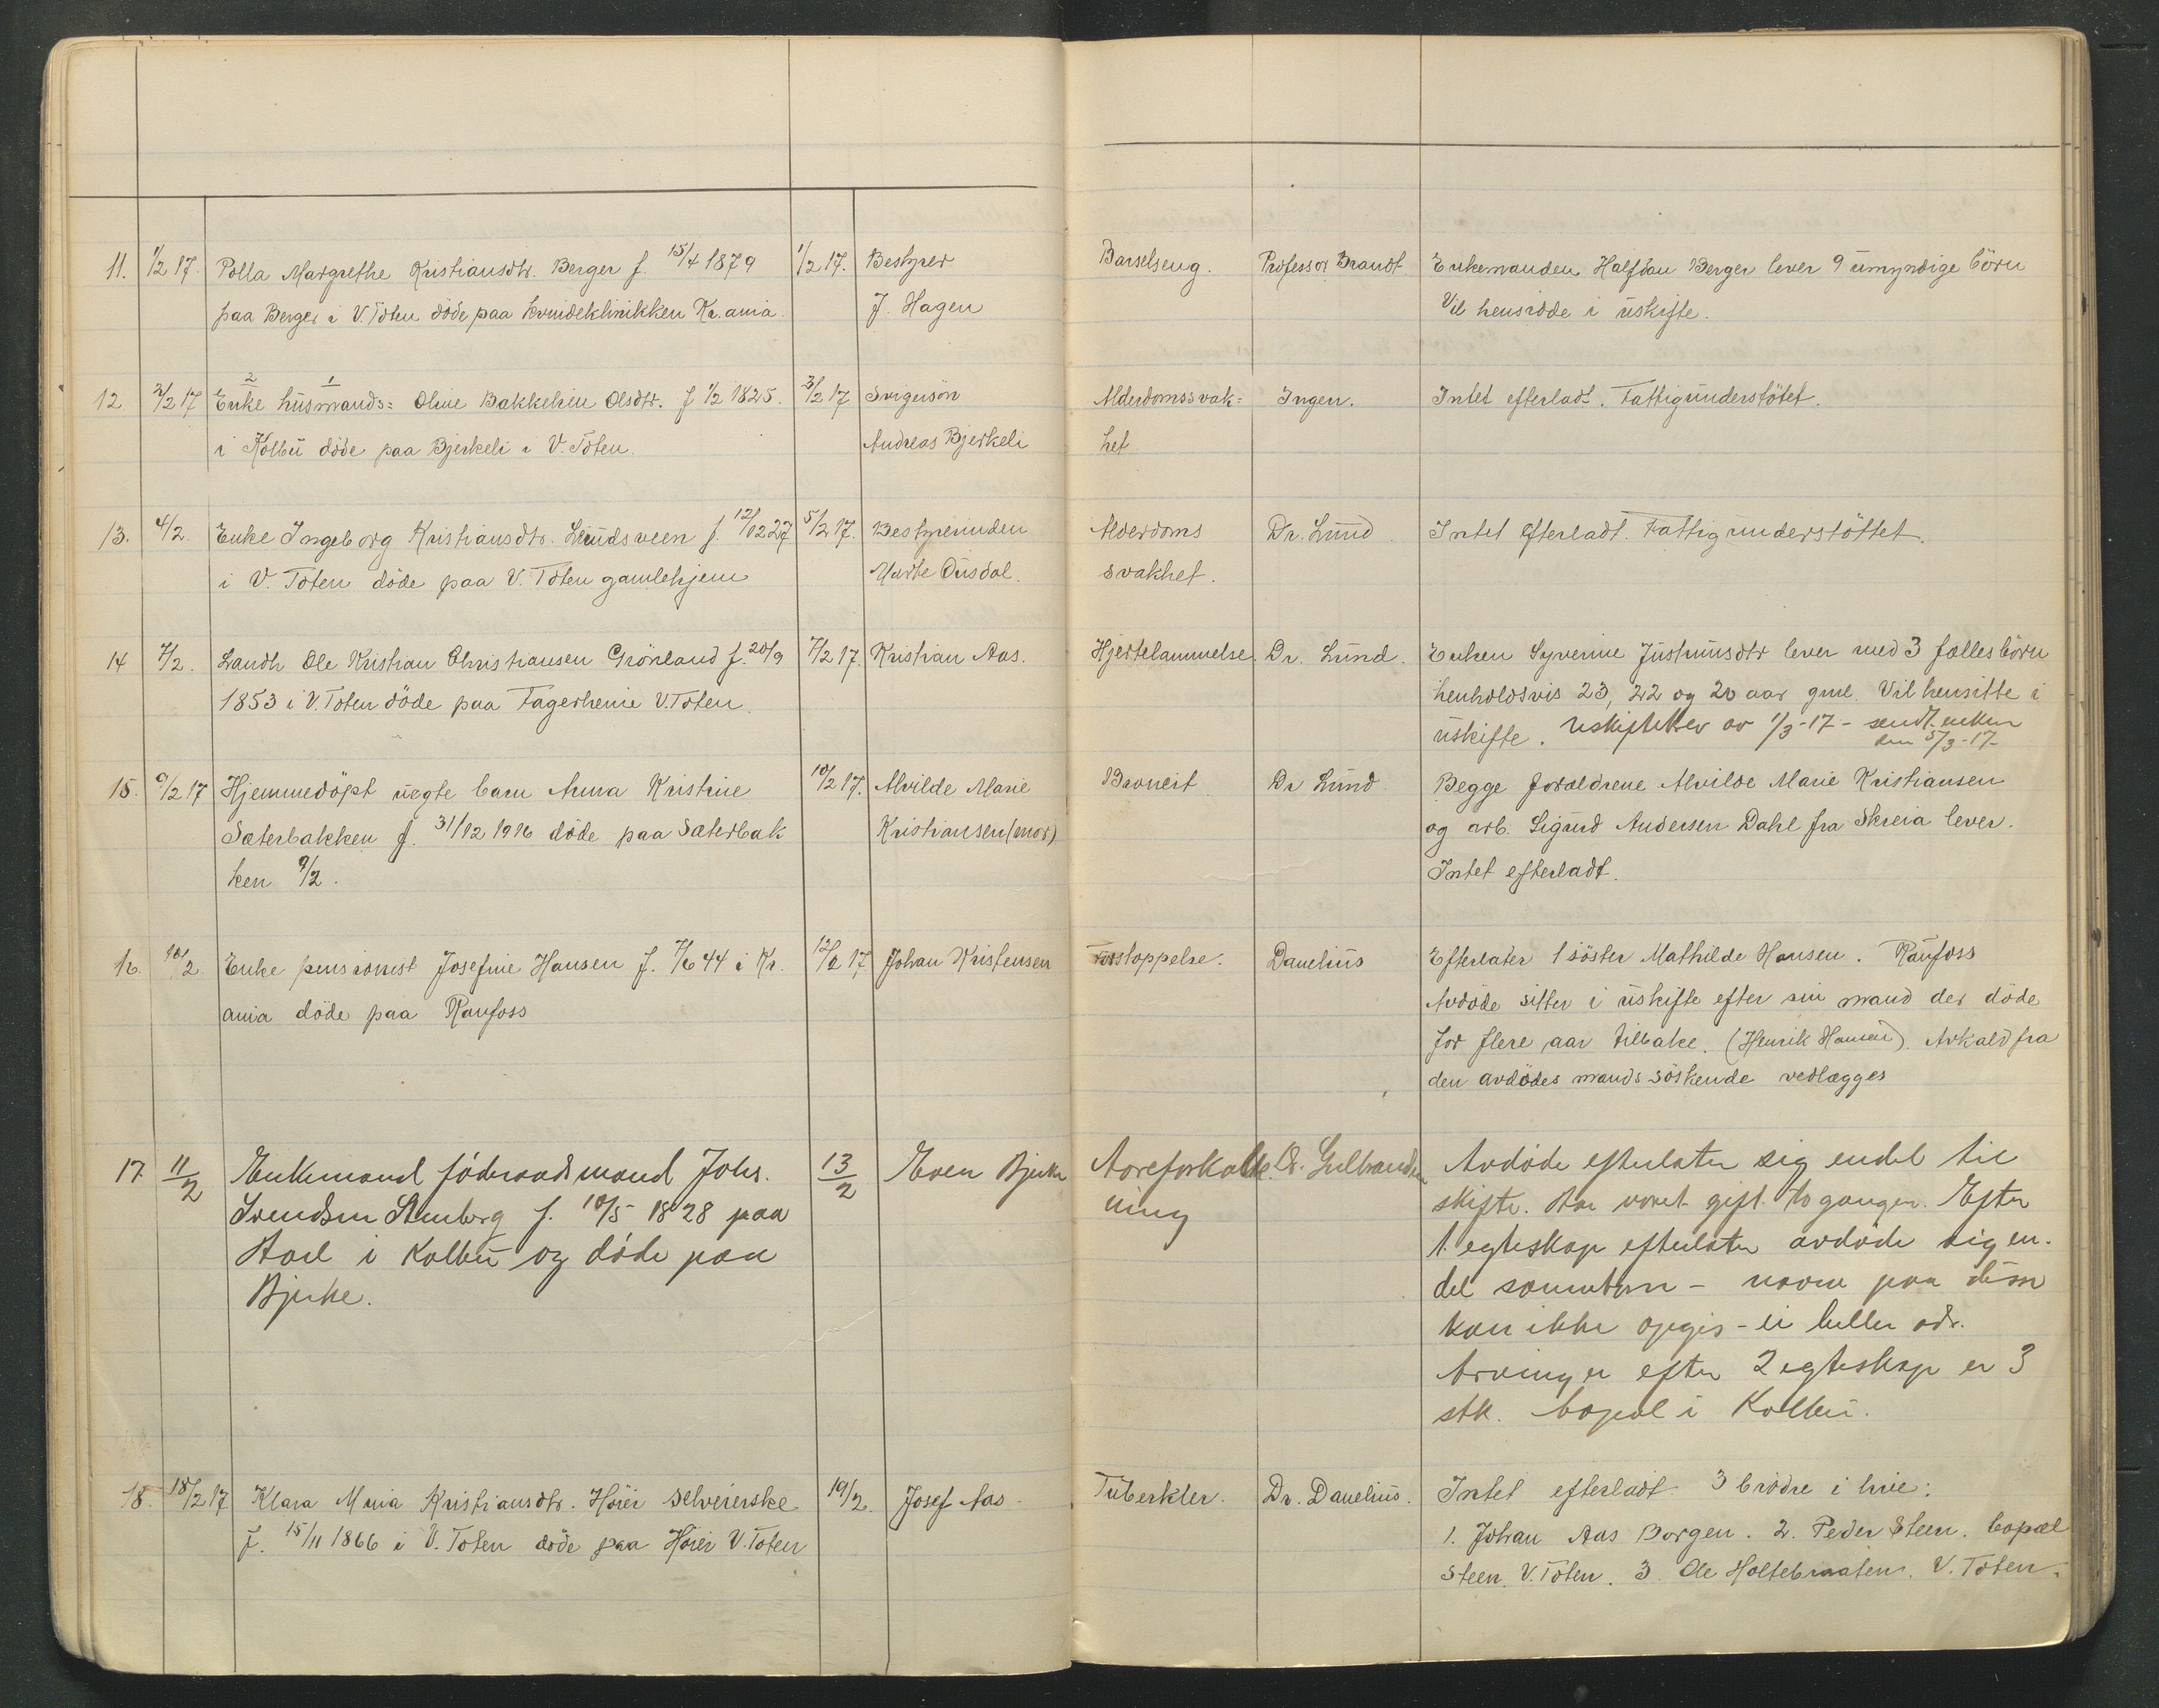 11. 1/2 17. Polla Margrethe Kristiansdtr. Berger f. 15/4 1879 1/2 17. Bestyrer Barselseng. Professor Brandt. Enkemanden Halfdan Berger lever 9 umyndige börn
paa Berger i V. Toten döde paa Kvindeklinikken Kr.ania. J. Hagen Vil hensidde i uskifte.
12 3/2 17 2 Enke 1 husmands= Oline Bakkelien Olsdtr. f 1/2 1825. 3/2 17 Svigersön Alderdomssvak= Ingen. Intet efterladt. Fattigunderstötet.
i Kolbu döde paa Bjerkeli i V. Toten. Andreas Bjerkeli het
13. 4/2. Enke Ingeborg Kristiansdtr. Lundsveen f. 12/12 27 5/2 17. Bestyrerinden Alderdoms Dr. Lund. Intet efterladt. Fattigunderstöttet.
i V. Toten döde paa V. Toten gamlehjem Marte svakhet.
14 7/2. Landh. Ole Kristian Christiansen Grönland f. 20/9 7/2 17. Kristian Aas. Hjertelammelse. Dr. Lund. Enken Syverine Justinusdtr lever med 3 fælles börn
1853 i V. Toten döde paa Fagerheim V. Toten. henholdsvis 23, 22 og 20 aar gml. Vil hensitte i
uskifte. Uskiftebrev av 1/3-17- sendt enken
den 5/3-17-
15. 9/2 17 Hjemmedöpt uegte barn Anna Kristine 10/2 17. Alvilde Marie Bronkit Dr Lund. Begge forældrene Alvilde Marie Kristiansen
Sæterbakken f. 31/12 1916 döde paa Sæterbak Kristiansen (mor) og arb. Sigurd Andersen Dahl fra Skreia lever.
ken 9/2. Intet efterladt.
16. 10/2. Enke pensionist Josefine Hansen f. 7/6 44 i Kr. 12/2 17 Johan Kristensen Forstoppelse. Danelius Efterlater 1 söster Mathilde Hansen. Raufoss
ania döde paa Raufoss Avdöde sitter i uskifte efter sin mand der döde
for flere aar tilbake. (Henrik Hansen). Avkald fra
den avdödes mands söskende vedlægges
17. 11/2 Enkemand föderaadsmand Johs. 13/2 Even Bjerke Aareforkalk Dr. Gulbrandsen Avdöde efterlater sig endel til
Svendsen Stenberg f. 10/5 1828 paa ning skifte. Har været gift to ganger. Efter
i Kolbu og döde paa 1. egteskap efterlater avdöde sig en-
Bjerke. del – navne paa dem
kan ikke opgis – ei heller adr.
Arvinger efter 2 egteskap er 3
stk. bopæl i Kolbu.
18. 18/2 17 Klara Maria Kristiansdtr. Höier selveierske 19/2. Josef Aas Tuberkler. Dr. Danelius. Intet efterladt. 3 brödre i live:
f. 15/11 1866 i V. Toten döde paa Höier V. Toten 1. Johan Aas Borgen. 2. Peder Steen. bopæl
Steen V. Toten. 3. Ole Holtebraaten. V. Toten.